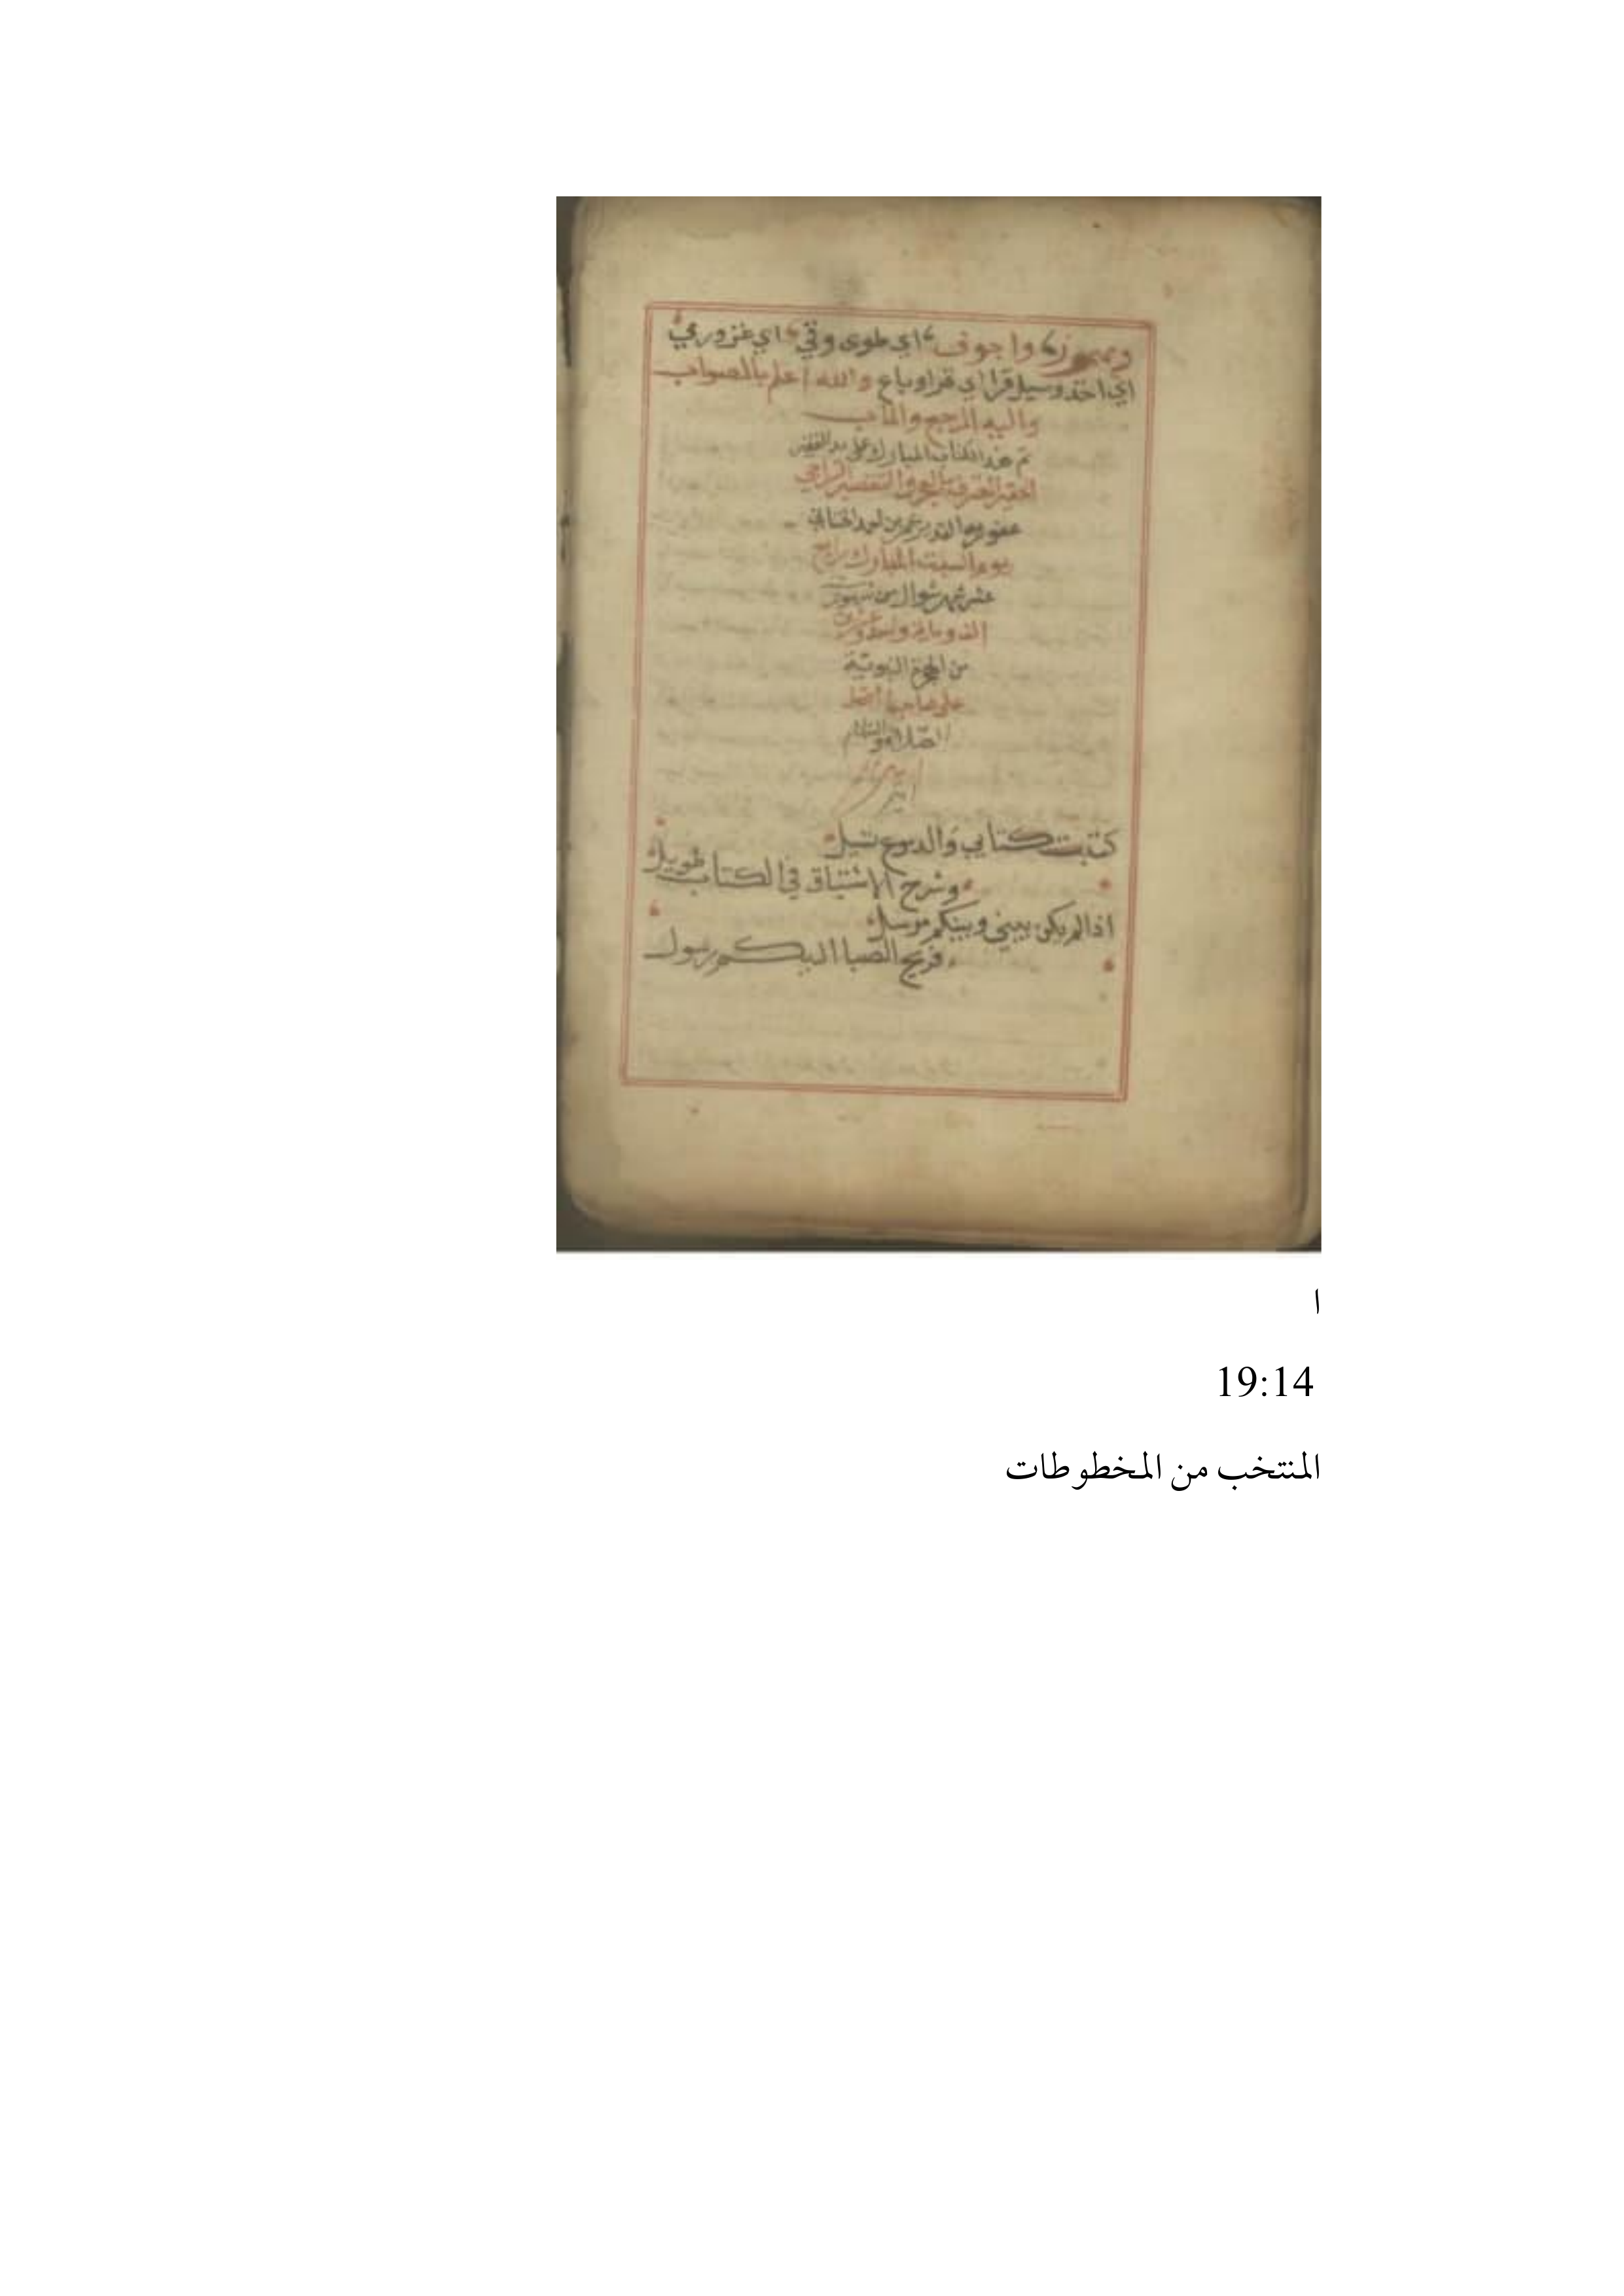 ومهموز واجوف اي طوى وقي اي غزورمي
اي اخذ وسيل قرا اي قرا وباع والله اعلم بالصواب
واليه المرجع والماب
تم هذا الكتاب المبارك على يد الفقير
الحقير المعترف بالعجز والتقصير الراجي
عفو ربه القدير بن احمد
يوم السبت المبارك رابع
عشر شهر شوال من شهور
الف ومايه
من الهجرة النبوية
على صاحبها افضل
الصلاة والسلام
كتبت كتابي والدموع تسيل
وشرح الاشتياق في الكتاب طويل
اذا لم يكن بيني وبينكم مرسل
فريح الصبا اليكم رسول
ا
19:14
المنتخب من المخطوطات